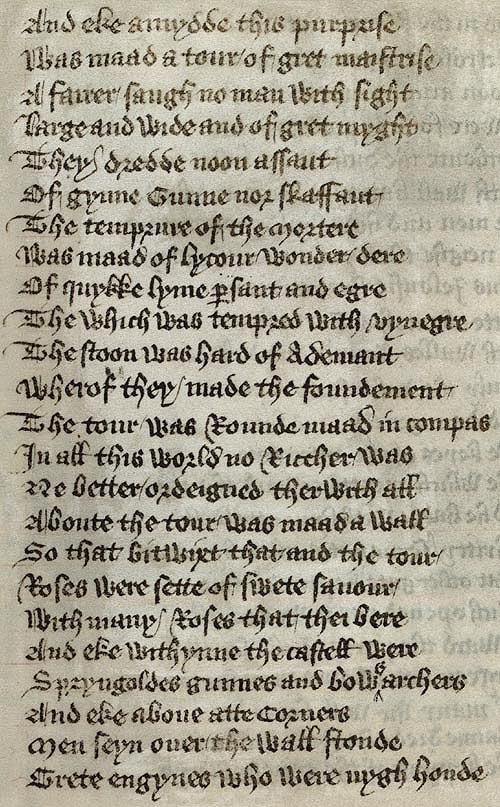 And eke amydde this purprise
Was maad a tour of gret maistrise
A fairer saugh no man with sight
Large and wide and of gret myght
They dredde noon assaut
Of gynne Gunne nor skaffaut
The temprure of the mortere
Was maad of lycour wonder dere
Of quykke lyme ꝑsant and egre
The which was tempred with vynegre
The stoon was hard of Ademant
Wherof they made the foundement
The tour was Rounde maad in compas
In all this world no Riccher was
Ne better ordeigned therwith all
Aboute the tour was maad a wall
So that bitwixt that and the tour
Roses were sette of swete sauour
With many Roses that thei bere
And eke withynne the castell were
Spryngoldes gunnes and bows archers
And eke aboue atte Corners
Men seyn ouer the wall stonde
Grete engynes who were nygh honde